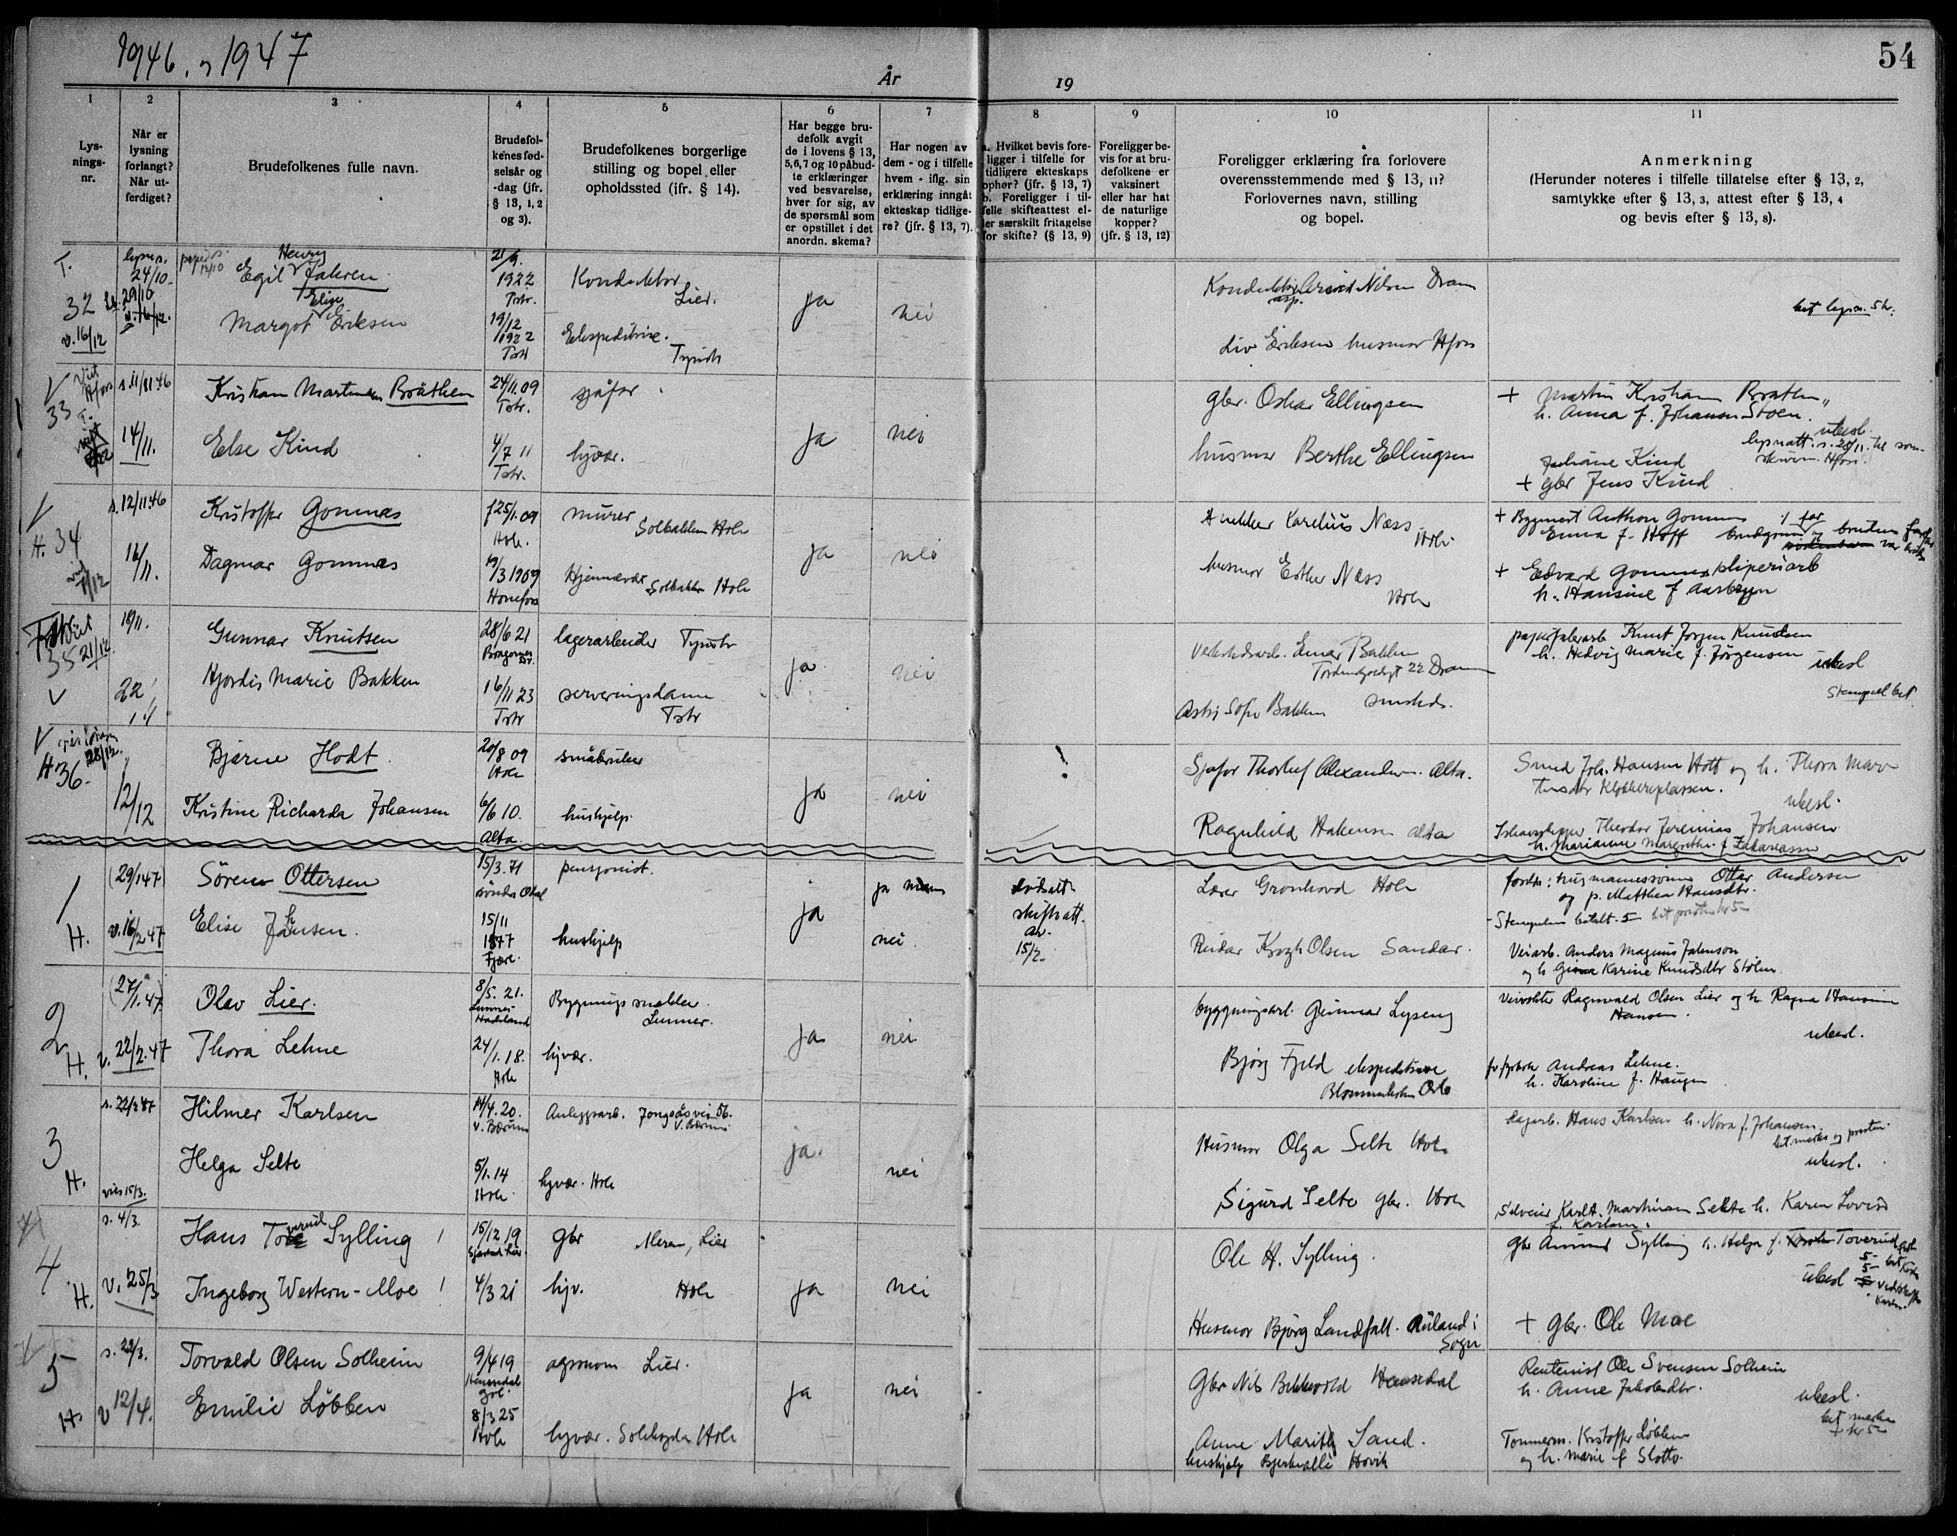 1946. og 1947
År
19
54
1
2
3
4
5
6
7
8
9
10
11
Lys-
nings-
nr.
Når er
lysning
forlangt?
Når ut-
ferdiget?
Brudefolkenes fulle navn.
Brudefol-
kenes fød-
selsår og
-dag (jfr.
§ 13, 1, 2
og 3).
Brudefolkenes borgerlige
stilling og bopel eller
opholdssted (jfr. § 14).
Har begge bru-
defolk avgit
de i lovens § 13,
5,6,7 og 10 påbud-
te erklæringer
ved besvarelse,
hver for sig, av
de spørsmål som
er opstillet i det
anordn. skema?
Har nogen av
dem - og i tilfelle
hvem - iflg. sin
erklæring inngåt
ekteskap tidlige-
re? (jfr. § 13, 7).
a. Hvilket bevis fore-
ligger i tilfelle for
tidligere ekteskaps
ophør? (jfr. § 13, 7)
b. Foreligger i til-
felle skifteattest el-
ler særskilt fritagelse
for skifte? (§ 13, 9)
Foreligger be-
vis for at bru-
defolkene er
vaksinert
eller har hat
de naturlige
kopper?
(jfr. § 13, 12)
Foreligger erklæring fra forlovere
overensstemmende med § 13, 11?
Forlovernes navn, stilling
og bopel.
Anmerkning
(Herunder noteres i tilfelle tillatelse efter § 13, 2,
samtykke efter § 13, 3, attest efter § 13, 4
og bevis efter § 13, 8).
T.
32
v. 16/12
24/10
29/10
Henry
Egil Jahren
Elise
Margot Eriksen
21/9.
1922
Tstr.
19/12
1922
Tstr
Konduktør
Lier.
Ekspeditrise.
Tyristr
ja
nei
Arvid Nilsen Dram
Liv Eriksen husmor Hfoss
bet lysn. 5 kr.
V
33
T.
s. 11/11 46
14/11.
Kristian Martinsen Bråthen
Else Kind
24/11.09
Tstr.
4/7 11
Tstr.
sjåfør
hjvær.
ja
nei
gbr. Oskar Ellingsen
husmor Berthe Ellingsen
+ Martin Kristian Braathen
h. Anna f. Johansen Stoen.
ubesl.
Juliane Kind
+ gbr Jens Kind
V
H. 34
s. 12/11 46
16/11.
Kristoffer Gomnæs
Dagmar Gomnæs
f 25/1.09
Hole.
19/3 1909
Hønefoss
murer
Solbakken Hole
Hjemmevær
Solbakken Hole
ja
nei
Snekker Karelius Næss
Hole
husmor Esther Næss
Hole
+ Bygmest Anthon Gomnæs
Emma f. Hoff
+ Edvard Gomnæs sliperiarb
h. Hansine f Aarbygen
35 21/12
V
19/11.
22/11
Gunnar Knutsen
Hjørdis Marie Bakken
28/6 21
Bragernes
Dr.
16/11 23
Tstr
lagerarbeider Tyristr
serveringsdame
Tstr
ja
nei
Verkstedsarb. Einar Bakken
Tordenskjoldsgt 22 Dram
Astri Sofie Bakken smsteds.
papirfabrarb Knut Jørgen Knudsen
h. Hedvig Marie f. Jørgensen
ubesl
Stempel bet
V
28/12.
H. 36.
12/12
Bjarne Hodt
Kristine Richarda Johansen
20/8 09
Hole
6/6 10.
Alta.
småbruker
hushjelp
ja
nei
!
Sjåfør Thorleif Alexandersen. Alta.
Ragnhild Hakensen alta
Smed Joh. Hansen Hott og h. Thora Mar-
tinsdtr Klokkerplassen.
ubesl.
Ishavsskipper Theodor Jeremias Johansen
h. Marianne Margrethe f Zakariassen
1
H.
(29/1 47)
v. 16/2 47
Søren Ottersen
Elise Jensen.
15/3.71
Søndre Odal
15/11
1877
Fjære.
pensjonist.
hushjelp
ja
ja mann
nei
dødsatt.
skiftatt.
av.
15/2.
Lærer Grønhovd Hole
Reidar Krogh Olsen Sandar.
foreldr: husmannssønn Otter Andersen
og p. Matthea Hansdtr.
Stempelen betalt. 5 bet presten kr 5-
Veiarb. Anders Magnus Johnson
og h Gina Karine Knudsdtr Stølen.
2
H.
(27/1.47)
v. 22/2.47
Olav Lier.
Thora Lehne
8/5. 21.
Lunner
Hadeland
24/1.18.
Hole
Bygningssnekker.
Lunner.
hjvær.
ja
nei
bygningsarb. Gunnar Lyseng
Bjørg Fjeld ekspeditrise
Oslo
Veivokter Ragnvald Olsen Lier og h Ragna Hansine
Hansen.
ubesl.
Andreas Lehne.
h. Karoline f. Haugen
3
H.
s. 22/2 47
vies 15/3.
Hilmer Karlsen
Helga Selte
14/4.20.
V. Bærum
5/1.14
Hole
Anleggsarb. Jongsåsvei 56.
V. Bærum
hjvær. Hole
ja.
nei
Husmor Olga Selte Hole
Sigurd Selte gbr. Hole
Lagerb. Hans Karlsen h. Nora f. Johansen
ubesl.
Selveier Karl A. Martinsen Selte h. Karen Lovise
f. Karlsen.
4
H.
s. 4/3.
v. 25/3
Hans Toverud Sylling
Ingeborg Western-Moe
15/12 19
4/3 21
gbr Meren, Lier
hjv. Hole
ja
nei
Ole H. Sylling.
Husmor Bjørg Landfall. Auland i
Sogn
gbr Amund Sylling h. Helga f. Toverud
ubesl
+ gbr. Ole Moe
5
H.
s. 22/3.
v 12/4.
Torvald Olsen Solheim
Emilie Løbben
9/4 19
Hemsedal
8/3 25
Hole
agronom Lier.
hjvær. Solihøgda Hole
ja
nei
Gbr Nils Bekkevold Hemsedal
Anne Marith Sand.
hushjelp Bjerkealle Høvik
Rentenist Ole Svensen Solheim
h. Anne Jakobsdtr.
ubesl.
bet merke
+ kr 5-
Tømmerm. Kristoffer Løbben
og h. Marie f Slotto.